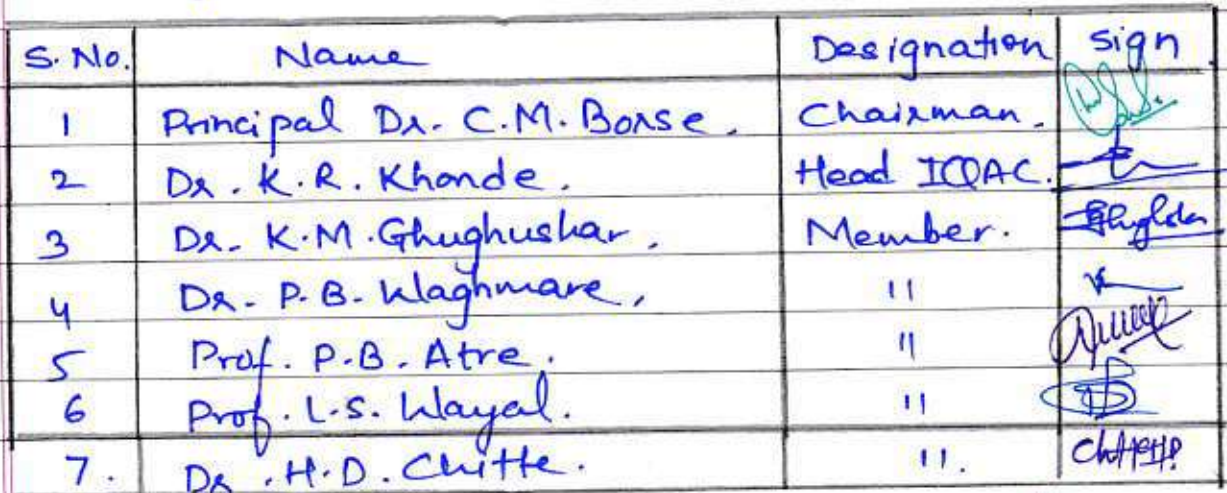 S. No. Name Designation Sign
1 Principal Dr. C.M. Borse. Chairman.
2 Dr. K.R. Khonde. Head IQAC.
3 Dr. K.M. Ghughushar. Member.
4 Dr. P.B. Waghmare, "
5 Prof. P.B. Atre. "
6 Prof. L.S. Wayal. "
7. Dr. H.D. Chitte. ".